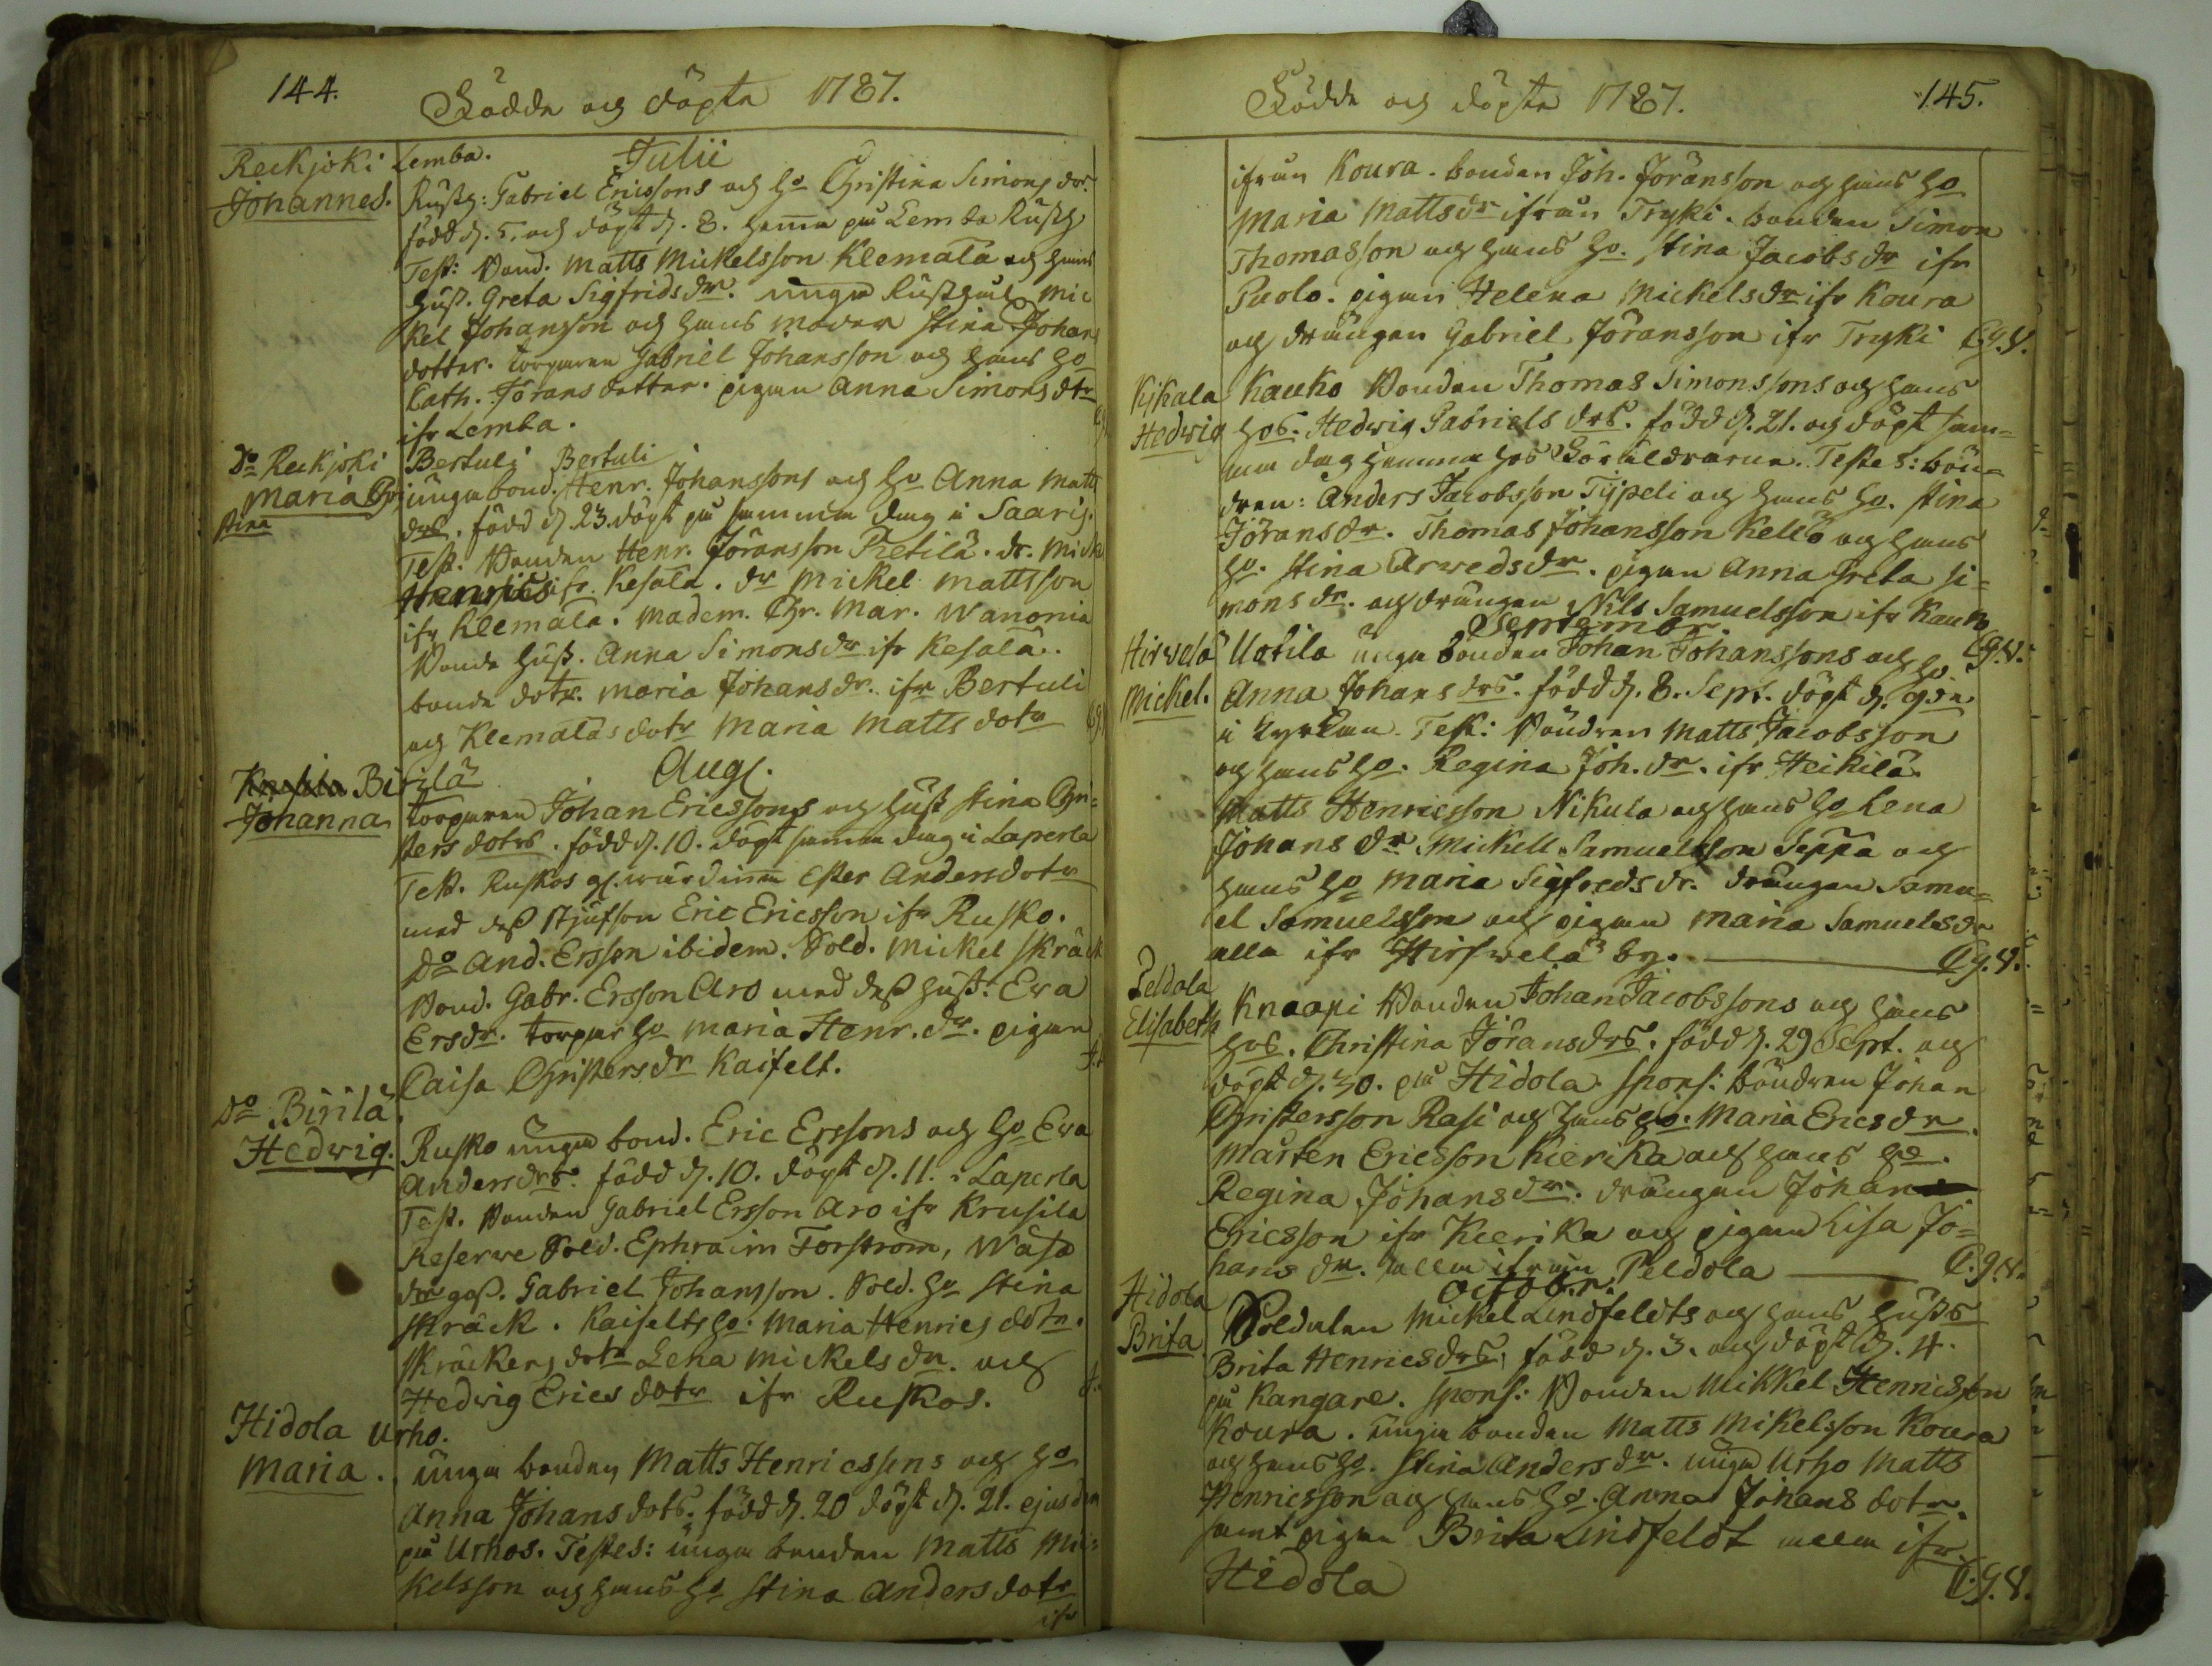 144.
Födde och döpte 1787.
Reckjoki Lemba. Julii
Johannes. Rusth: Gabriel Ericssons och Ho Christina Simons dr.
född d. 5. och döpt d. 8. hemma på Lemba Rusth
Test: Bond. Matts Mickelsson Klemala och hans
hust. Greta Sigfrids dr. unga Rusthåll. Mic
kel Johansson och hans moder Stina Johans
dotter. torparen Gabriel Johansson och hans Ho
Cath. Jörans dotter. pigan Anna Simons dtr
ifr Lemba.
Do Reckjoki Bertuli Bertuli
Maria Chri unga bond. Henr. Johanssons och Ho Anna Matts
stina drs. född d 23. döpt på samma dag i Saaris.
Test. Bonden Henr. Jöransson Pietilä. dr. Mick
Henrics ifr. Kesala. dr Mickel Mattsson
ifr Klemala. Madem. Chr. Mar. Wanonia
Bonde hust. Anna Simons dr ifr Kesala.
bonde dotr. Maria Johans dr. ifr Bertuli
och Klemalas dotr Maria Matts dotr
Birilä Aug.
Johanna torparen Johan Ericssons och hust Stina Chri=
sters dotrs. född d. 10. döpt samma dag i Laperla
Test. Ruskos gl. wärdinna Ester Andersdotr
med dess stjufson Eric Ericsson ifr Rusko.
Do And. Ersson ibidem. Sold. Mickel Skräck
Bond. Gabr. Ersson Aro med dess hust: Eva
Ersdr. torpar Ho Maria Henr. dr. pigan
Caisa Christers dr Kaifelt.
Do Birilä
Hedwig. Rusko unga bond. Eric Erssons och Ho Eva
Anders drs. född d. 10. döpt d. 11. i Laperla
Test. Bonden Gabriel Ersson Aro ifr Krusila
Reserwe Sold. Ephraim Forström, Wäsa
dr goss. Gabriel Johansson. Sold. Ho Stina
Skräck. Kaifelts Ho. Maria Henrics dotr.
Skräckens dotr Lena Mickels dr. och
Hedwig Erics dotr ifr Ruskos.
Hidola Urho.
Maria. unga bonden Matts Henricssons och Ho
Anna Johans dotrs. född d. 20 döpt d. 21. ejusdem
på Urhos. Testes: unga bonden Matts Mi=
kelsson och hans Ho Stina Anders dotr
ifr
Födde och döpte 1787.
145.
ifrån Koura. bonden Joh. Jöransson och hans Ho
Maria Matts dr ifrån Tryki. bonden Simon
Thomasson och hans Ho. Stina Jacobs dr ifr
Puolo. pigan Helena Mickels dr ifr Koura
och drängen Gabriel Jöransson ifr Tryki C.g.V.
Kjkala Kauko Bonden Thomas Simonssons och hans
Hedwig Hos. Hedwig Gabriels drs. född d. 21. och döpt sam=
ma dag hemma hos Föräldrarne. Testes: bön=
dren: Anders Jacobsson Tijpeli och hans Ho. Stina
Jörans dr. Thomas Johansson Kellö och hans
Ho. Stina Arweds dr. pigan Anna Greta Si=
mons dr. och drängen Nils Samuelsson ifr Kauko
C.g.V.
September.
Hirwelä Uotila unga bonden Johan Johanssons och Ho
Mickel. Anna Johans drs. född d. 8. Sept. döpt d. 9de
i kyrkan. Test: Böndren Matts Jacobsson
och hans Ho. Regina Joh. dr. ifr Heikilä.
Matts Henricsson Nikula och hans Ho Lena
Johans dr Mickell Samuelsson Seppä och
hans Ho Maria Sigfreds dr. drängen Samu=
el Samuelsson och pigan Maria Samuels dr
alla ifr Hirfwelä by. C.g.V.
Peldola Knaapi Bonden Johan Jacobssons och hans
Elisabeth Hos. Christina Jörans drs. född d. 29 Sept. och
döpt d. 30. på Hidola. Spons: böndren Johan
Christersson Rasi och hans Ho. Maria Erics dr
Mårten Ericsson Kierika och hans Ho.
Regina Johans dr. drängen Johan
Ericsson ifr Kierika och pigan Lisa Jo=
hans dr. alla ifrån Peldola C.g.V.
October.
Hidola Soldaten Mickel Lindfeldts och hans husts
Brita Brita Henrics drs, född d. 3. och döpt d. 4.
på Kangare. Spons: Bonden Mikkel Henricsson
Koura. unga bonden Matts Mikelsson Koura
och hans Ho. Stina Anders dr. unga Urho Matts
Henricsson och hans Ho. Anna Johans dotr.
samt pigan Brita Lindfeldt alla ifr.
Hidola C.g.V.